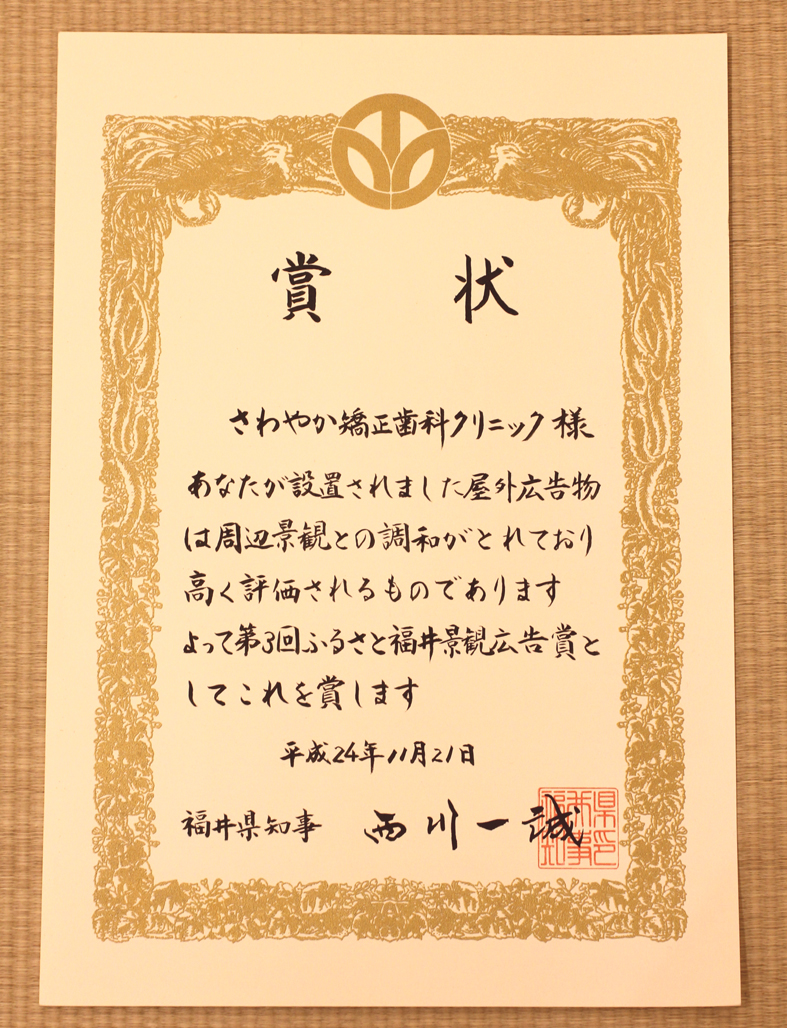 賞状
さわやか矯正歯科クリニック様
あなたが設置されました屋外広告物
は周辺景観との調和がとれており
高く評価されるものであります
よって第3回ふるさと福井景観広告賞と
してこれを賞します
平成24年11月21日
福井県知事 西川一誠